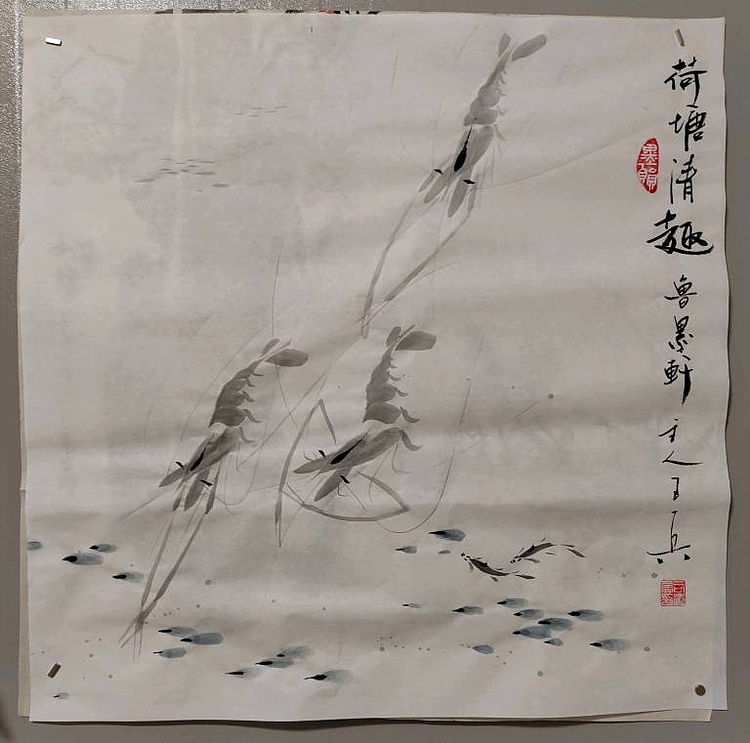 荷塘清趣 魯墨軒主人王兵